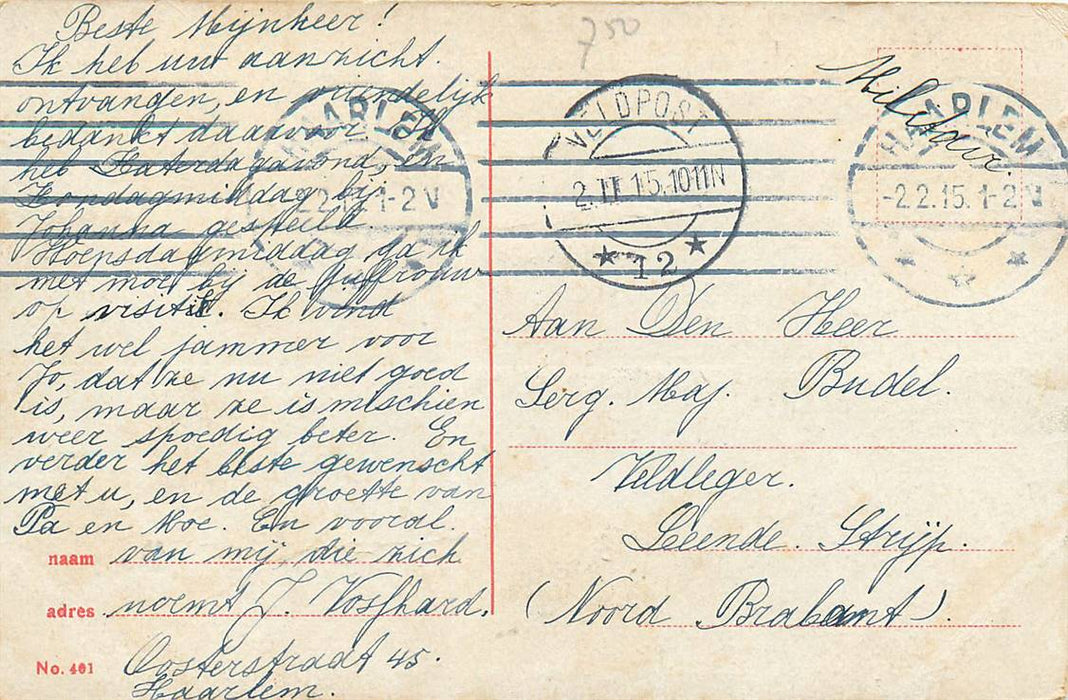 Beste Mijnheer!
Ik heb uw aanzicht.
ontvangen, en vriendelijk
bedankt daarvoor. Ik
heb Zaterdagavond, en
Zondagmiddag bij
Johanna gespeeld.
Woensdagmiddag ga ik
met moe bij de Juffrouw
op visite. Ik vind
het wel jammer voor
Jo, dat ze nu niet goed
is, maar ze is mischien
weer spoedig beter. En
verder het beste gewenscht
met u, en de groette van
Pa en Moe. En vooral.
van mij, die zich
noemt J. Vosshard.
Oosterstraat 45.
Haarlem.
naam
adres
No. 401
750
HAARLEM
1-2 V
VELDPOST
2.II.15.1011N
12
HAARLEM
-2.2.15.1-2V
Militair.
Aan Den Heer
Serg. Maj. Budel.
Veldleger.
Leende. Strijp.
(Noord Brabant).